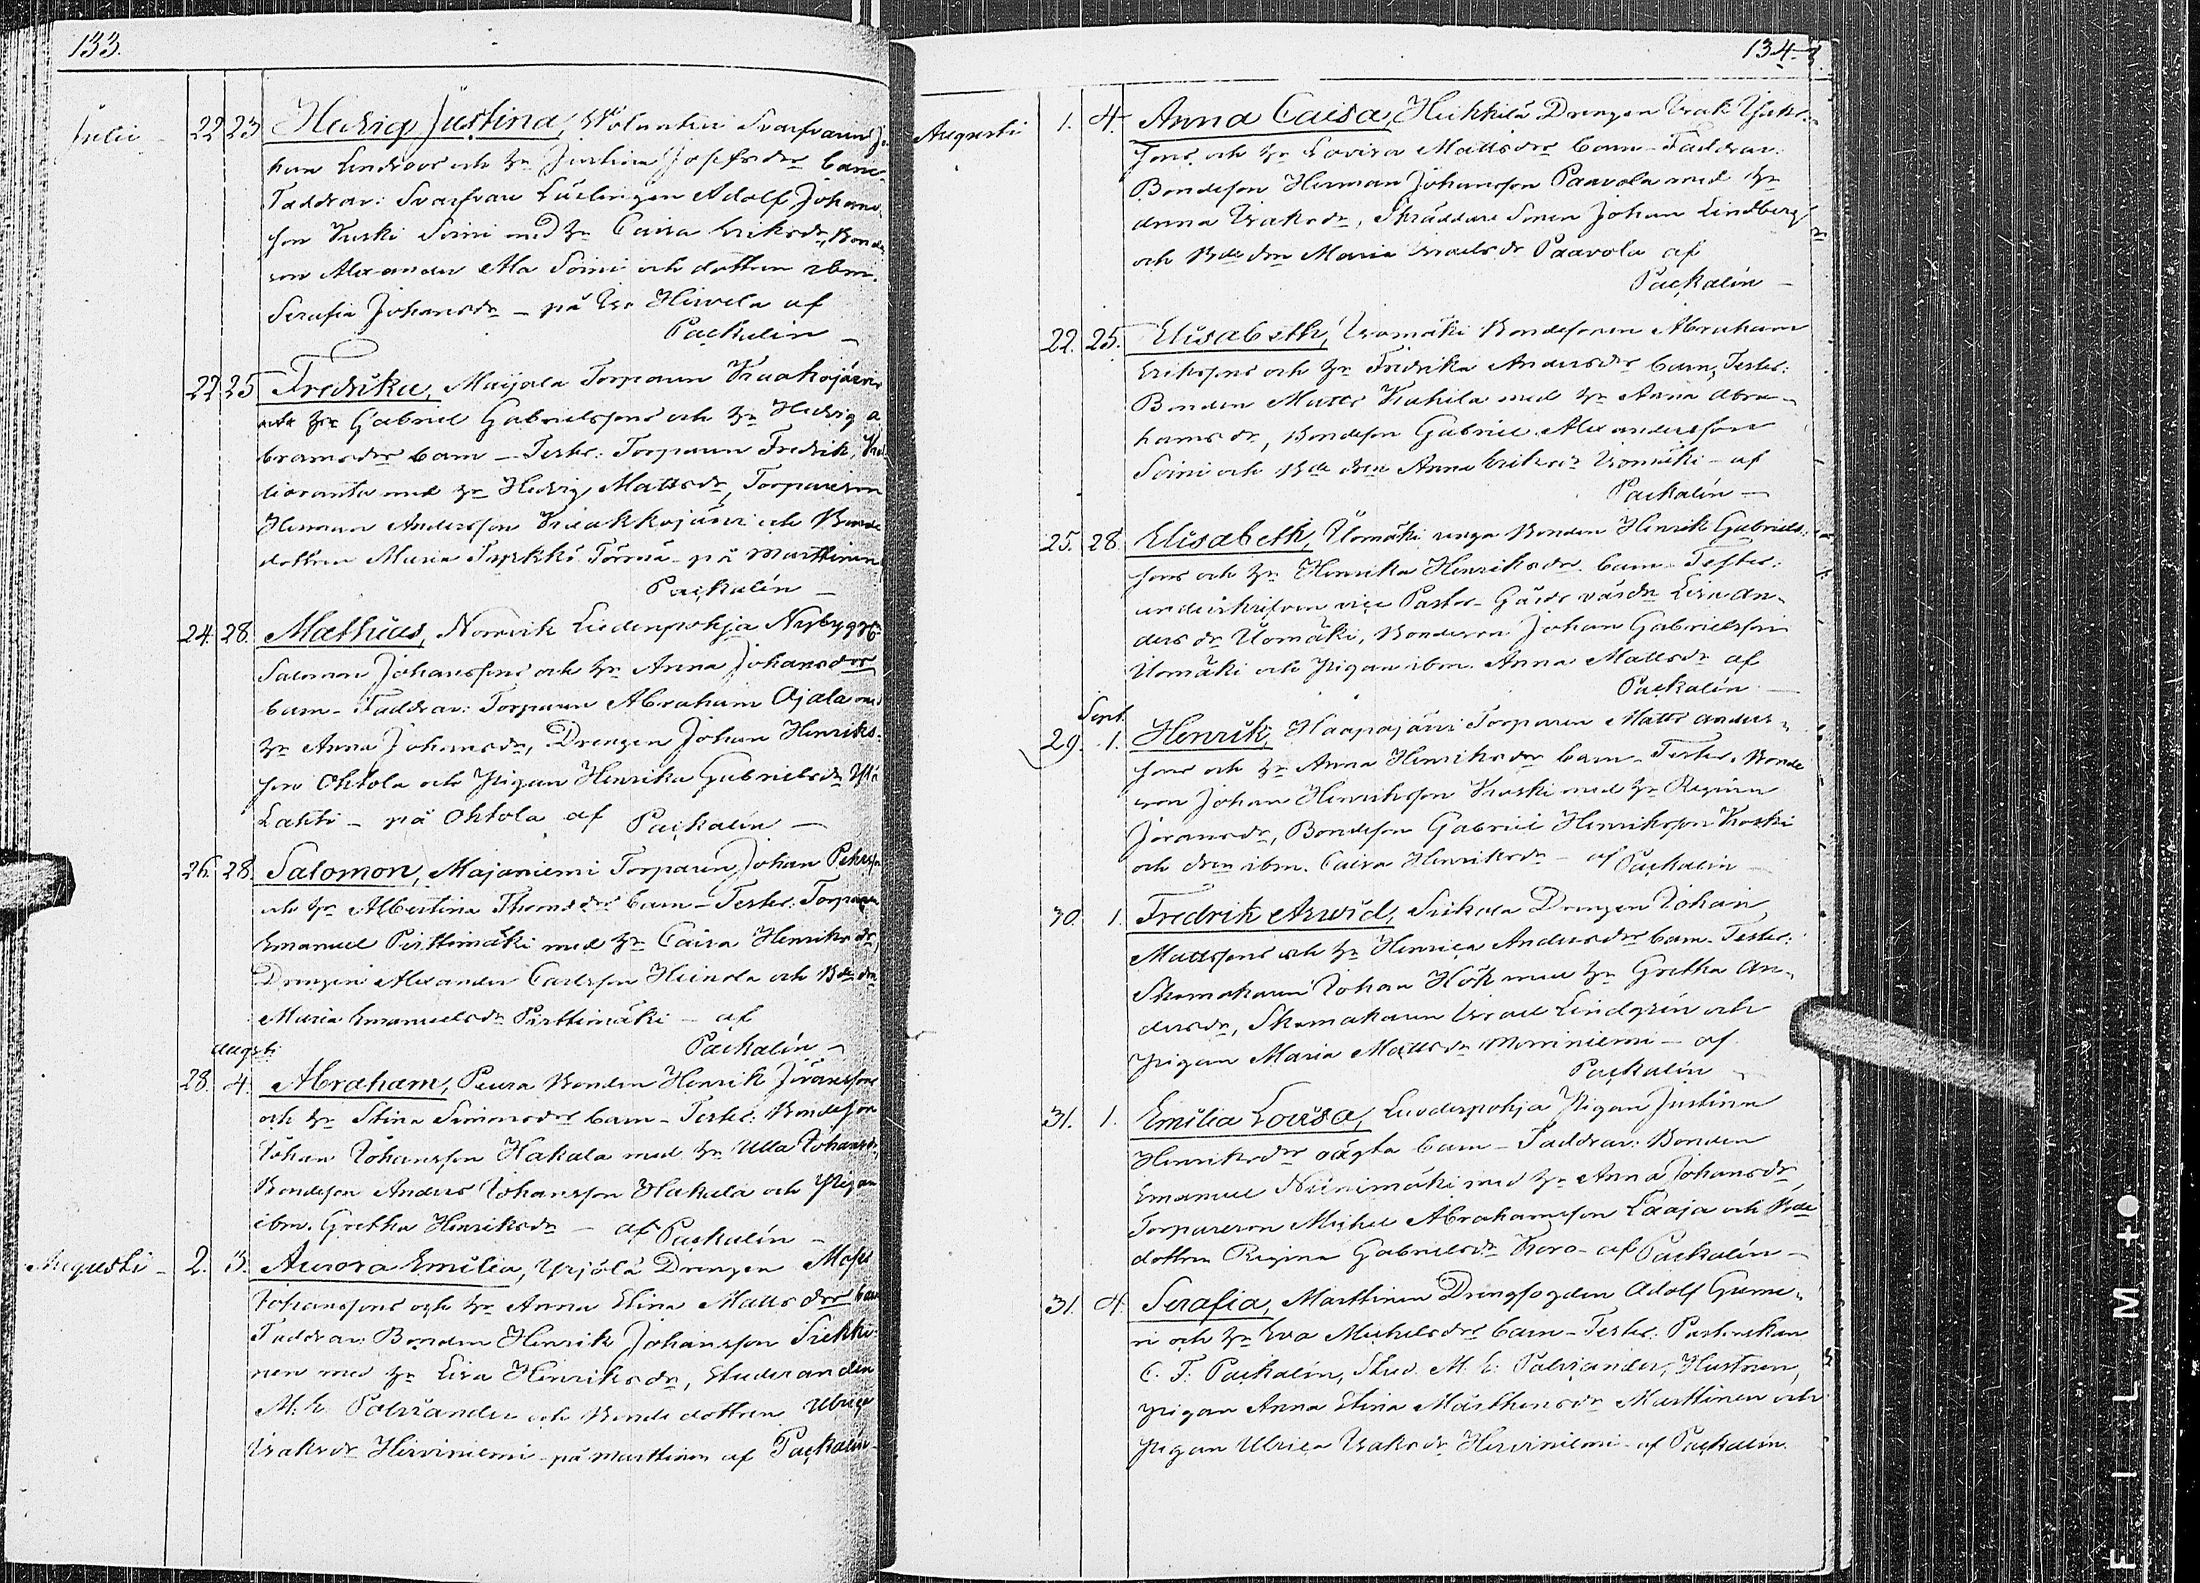 133.
Julii 22 23 Hedvig Justina, Svarfvarens
han Lindroos och hr Justina Josefsdrs barn
Faddrar: Svarfvare Lärlingen Adolf Johans
son Kuski Soini med hr Caisa Eriksdr, Bonde
son Alexander Ala Soini och dottren ibm.
Serafia Johansdr – på Hirvela af
Paçkalén –
22 25 Fredrika, Maijala Torparen
Gabriel Gabrielssons och hr Hedvig A
bramsdrs barn – Testes: Torparen Fredrik
med hr Hedvig Mattsdr, Torpareson
Herman Andersson och Bonde
dottren Maria Tyrkkö Törmä – på Marttinen
Paçkalén –
24. 28. Mathias, Norvik Liedenpohja Nybygg.
Salomon Johanssons och hr Anna Johansdrs
barn – Faddrar: Torparen Abraham Ojala med
hr Anna Johansdr, Drengen Johan Henriks-
son Ohtola och Pigan Henrika Gabrielsdr Yli
Lahti – på Ohtola af Paçkalén –
26. 28. Salomon, Majaniemi Torparen Johan Pehrss
och hr Albertina Thomsdrs barn – Testes. Torparen
Emanuel Pirttimäki med hr Caisa Henriksdr
Drengen Alexander Carlsson Heinola och Bde drn
Maria Emanuelsdr Pirttimäki – af
Paçkalén –
Augsti
28. 4. Abraham, Peura Bonden Henrik Jöranssons
och hr Stina Simonsdrs barn – Testes: Bondeson
Johan Johansson Hakala med hr Ulla Johansdr,
Bondeson Anders Johansson Hakala och Pigan
ibm. Gretha Henriksdr – af Paçkalén –
Augusti – 2. 3. Aurora Emilia, Yrjölä Drengen Moses
Johanssons och hr Anna Elina Mattsdrs barn
Faddrar: Bonden Henrik Johansson Siekki-
nen med hr Lisa Henriksdr, Studeranden
M. E. Palviander och Bonde dottren Ulrica
Isaksdr Hirviniemi – på Marttinen af Paçkalén
134.
Augusti 1. 4. Anna Caisa, Heikkilä Drengen Isak Isaks-
sons och hr Lovisa Mattsdrs barn – Faddrar:
Bondeson Herman Johansson Paavola med hr
Anna Isaksdr, Skräddare Sonen Johan Lindberg
och Bde drn Maria Israelsdr Paavola af
Paçkalén –
22. 25. Elisabeth, Isomäki Bondesonen Abraham
Erikssons och hr Fredrika Andersdrs barn, Testes:
Bonden Matts med hr Anna Abra-
hamsdr, Bondeson Gabriel Alexandersson
Soini och Bde drn Anna Eriksdr Isomäki – af
Paçkalén –
25. 28. Elisabeth, Uomäki unga Bonden Henrik Gabriels-
sons och hr Henrika Henriksdrs barn – Testes:
underskrifven vice Pastor – Gårds värdn Lisa An-
dersdr Uomäki, Bondeson Johan Gabrielsson
Uomäki och Pigan ibm. Anna Mattsdr af
Paçkalén –
Sept.
29. 1. Henrik, Haapajärvi Torparen Matts Anders-
sons och hr Anna Henriksdrs barn – Testes. Bonde
son Johan Henriksson Koski med hr Regina
Jöransdr, Bondeson Gabriel Henriksson Koski
och drn ibm. Caisa Henriksdr – af Paçkalén –
30. 1. Fredrik Arvid, Drengen Johan
Mattssons och hr Henrica Andersdrs barn – Testes:
Skomakaren Johan Hök med hr Gretha An-
dersdr, Skomakaren Israel Lindgrén och
Pigan Maria Mattsdr – af
Paçkalén –
31. 1. Emilia Lovisa, Luodespohja Pigan Justina
Henriksdrs oägta barn – Faddrar: Bonden
Emanuel Niinimäki med hr Anna Johansdr,
Torpareson Michel Abrahamsson Laaja och Bde
dottren Regina Gabrielsdr – af Paçkalén –
31. 4. Serafia, Marttinen Drengfogden Adolf
ri och hr Eva Michelsdrs barn – Testes: Pastorskan
C. F. Paçkalén, Stud. M. E. Palviander, Hustrun,
Pigan Anna Elina Mårthensdr Marttinen och
Pigan Ulrica Isaksdr Hirviniemi – af Paçkalén.
FILM